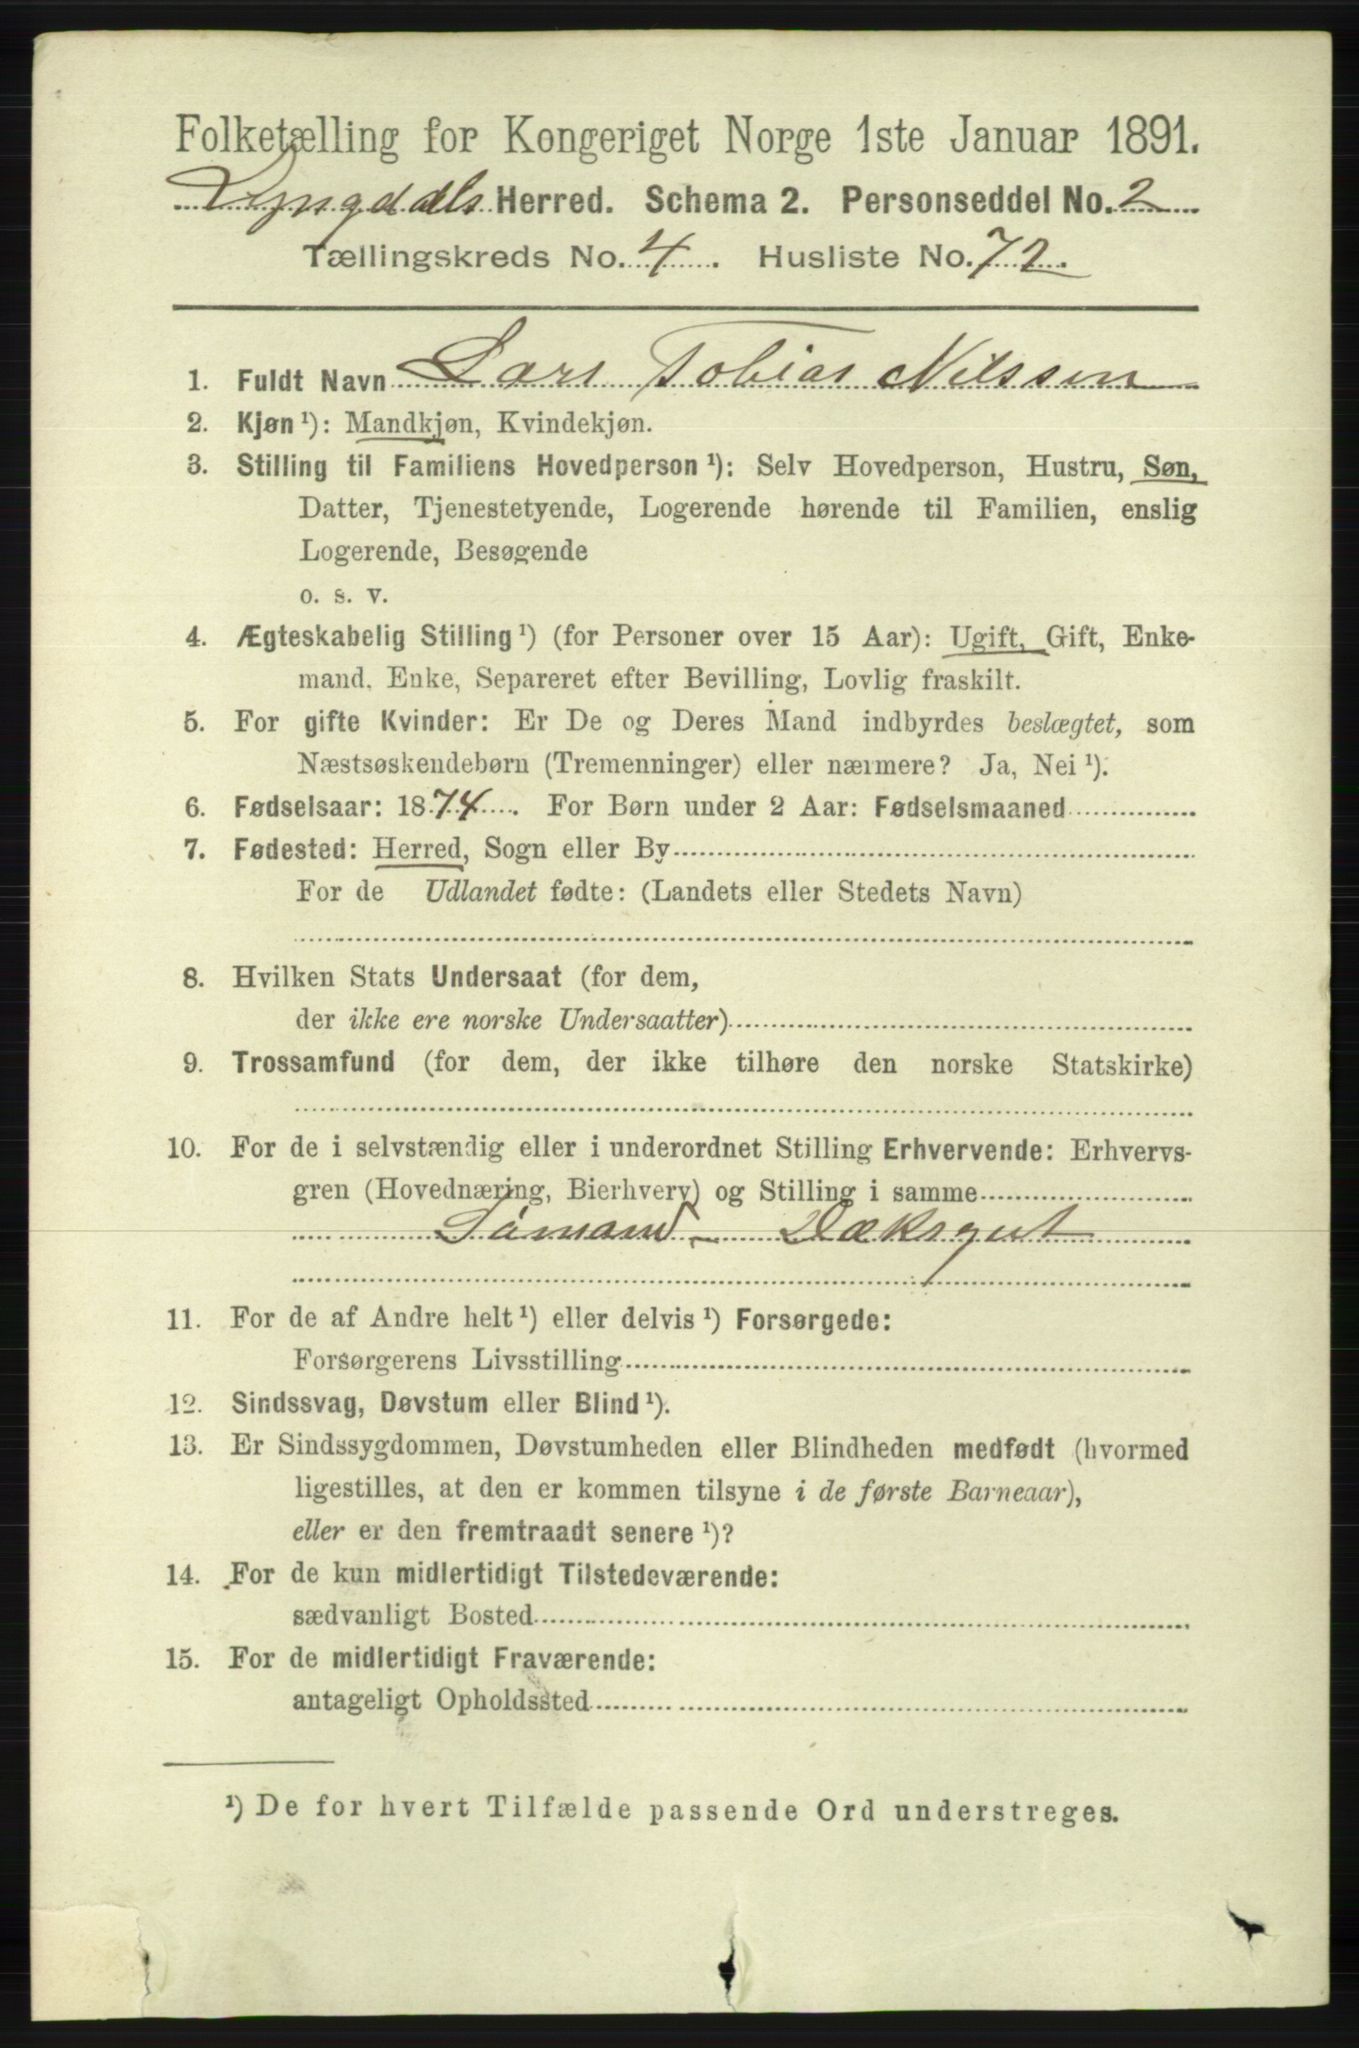 Folketælling for Kongeriget Norge 1ste Januar 1891.
Lyngdals Herred. Schema 2. Personseddel No. 2
Tællingskreds No. 4. Husliste No. 72.
1. Fuldt Navn Lars Tobias Nilssen
2. Kjøn ¹): Mandkjøn, Kvindekjøn.
3. Stilling til Familiens Hovedperson ¹): Selv Hovedperson, Hustru, Søn,
Datter, Tjenestetyende, Logerende hørende til Familien, enslig
Logerende, Besøgende
o. s. v.
4. Ægteskabelig Stilling ¹) (for Personer over 15 Aar): Ugift, Gift, Enke-
mand, Enke, Separeret efter Bevilling, Lovlig fraskilt.
5. For gifte Kvinder: Er De og Deres Mand indbyrdes beslægtet, som
Næstsøskendebørn (Tremenninger) eller nærmere? Ja, Nei ¹).
6. Fødselsaar: 1874. For Børn under 2 Aar: Fødselsmaaned
7. Fødested: Herred, Sogn eller By
For de Udlandet fødte: (Landets eller Stedets Navn)
8. Hvilken Stats Undersaat (for dem,
der ikke ere norske Undersaatter)
9. Trossamfund (for dem, der ikke tilhøre den norske Statskirke)
10. For de i selvstændig eller i underordnet Stilling Erhvervende: Erhvervs-
gren (Hovednæring, Bierhverv) og Stilling i samme
Sömand - Dæksgut
11. For de af Andre helt ¹) eller delvis ¹) Forsørgede:
Forsørgerens Livsstilling
12. Sindssvag, Døvstum eller Blind ¹).
13. Er Sindssygdommen, Døvstumheden eller Blindheden medfødt (hvormed
ligestilles, at den er kommen tilsyne i de første Barneaar),
eller er den fremtraadt senere ¹)?
14. For de kun midlertidigt Tilstedeværende:
sædvanligt Bosted
15. For de midlertidigt Fraværende:
antageligt Opholdssted
¹) De for hvert Tilfælde passende Ord understreges.